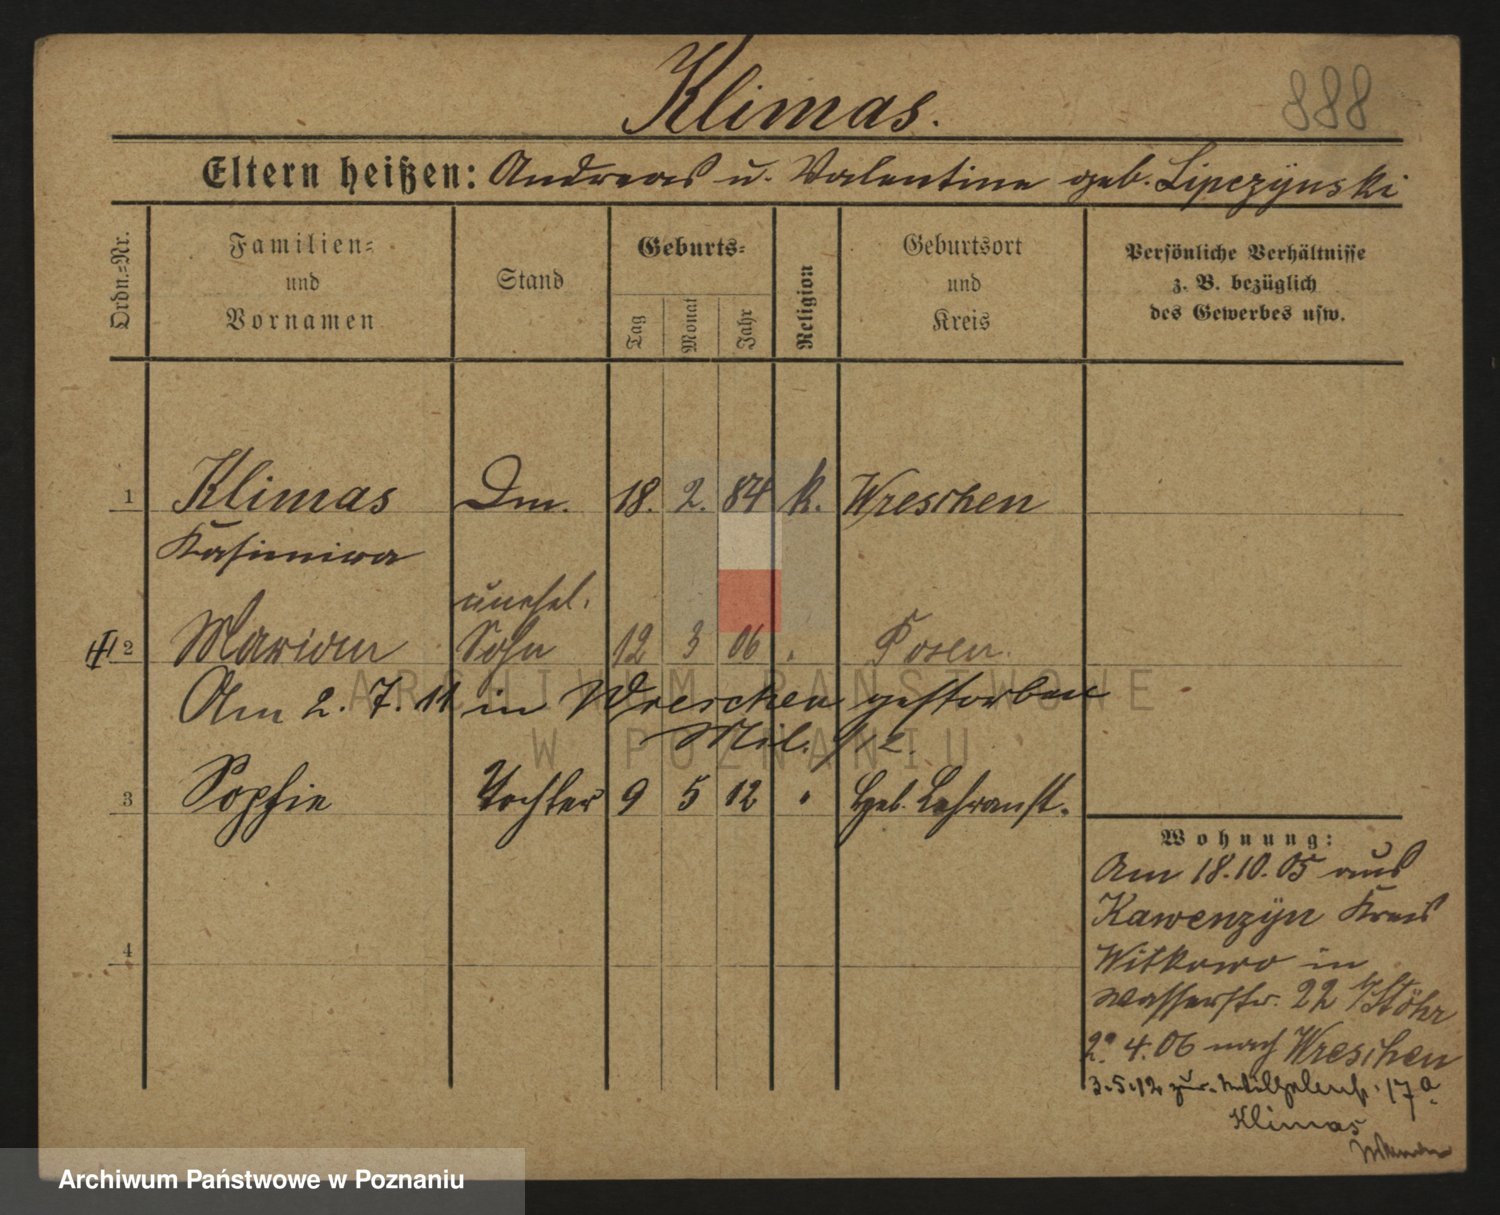 Klimas.
888
Eltern heißen: Andreas u. Valentine geb. Lipczynski
Ordn.-Nr.
Familien-
und
Vornamen
Stand
Geburts-
Tag
Monat
Jahr
Religion
Geburtsort
und
Kreis
Persönliche Verhältnisse
z. B. bezüglich
des Gewerbes usw.
1 Klimas Dm. 18. 2. 84 k. Wreschen
Kasimira
unehel.
2 Marian Sohn 12 3 06 Posen.
Am 2. 7. 11 in Wreschen gestorben
Mil.
3 Sophie Tochter 9 5 12 Heb. Lehranst.
4
Wohnung:
Am 18.10.05 aus
Kawenzyn Kreis
Witkowo in
Wasserstr. 22 b/ Stöhr
4.06 nach Wreschen
3.5.12 zur. 17a
Klimas
ARCHIWUM PAŃSTWOWE
W POZNANIU
Archiwum Państwowe w Poznaniu